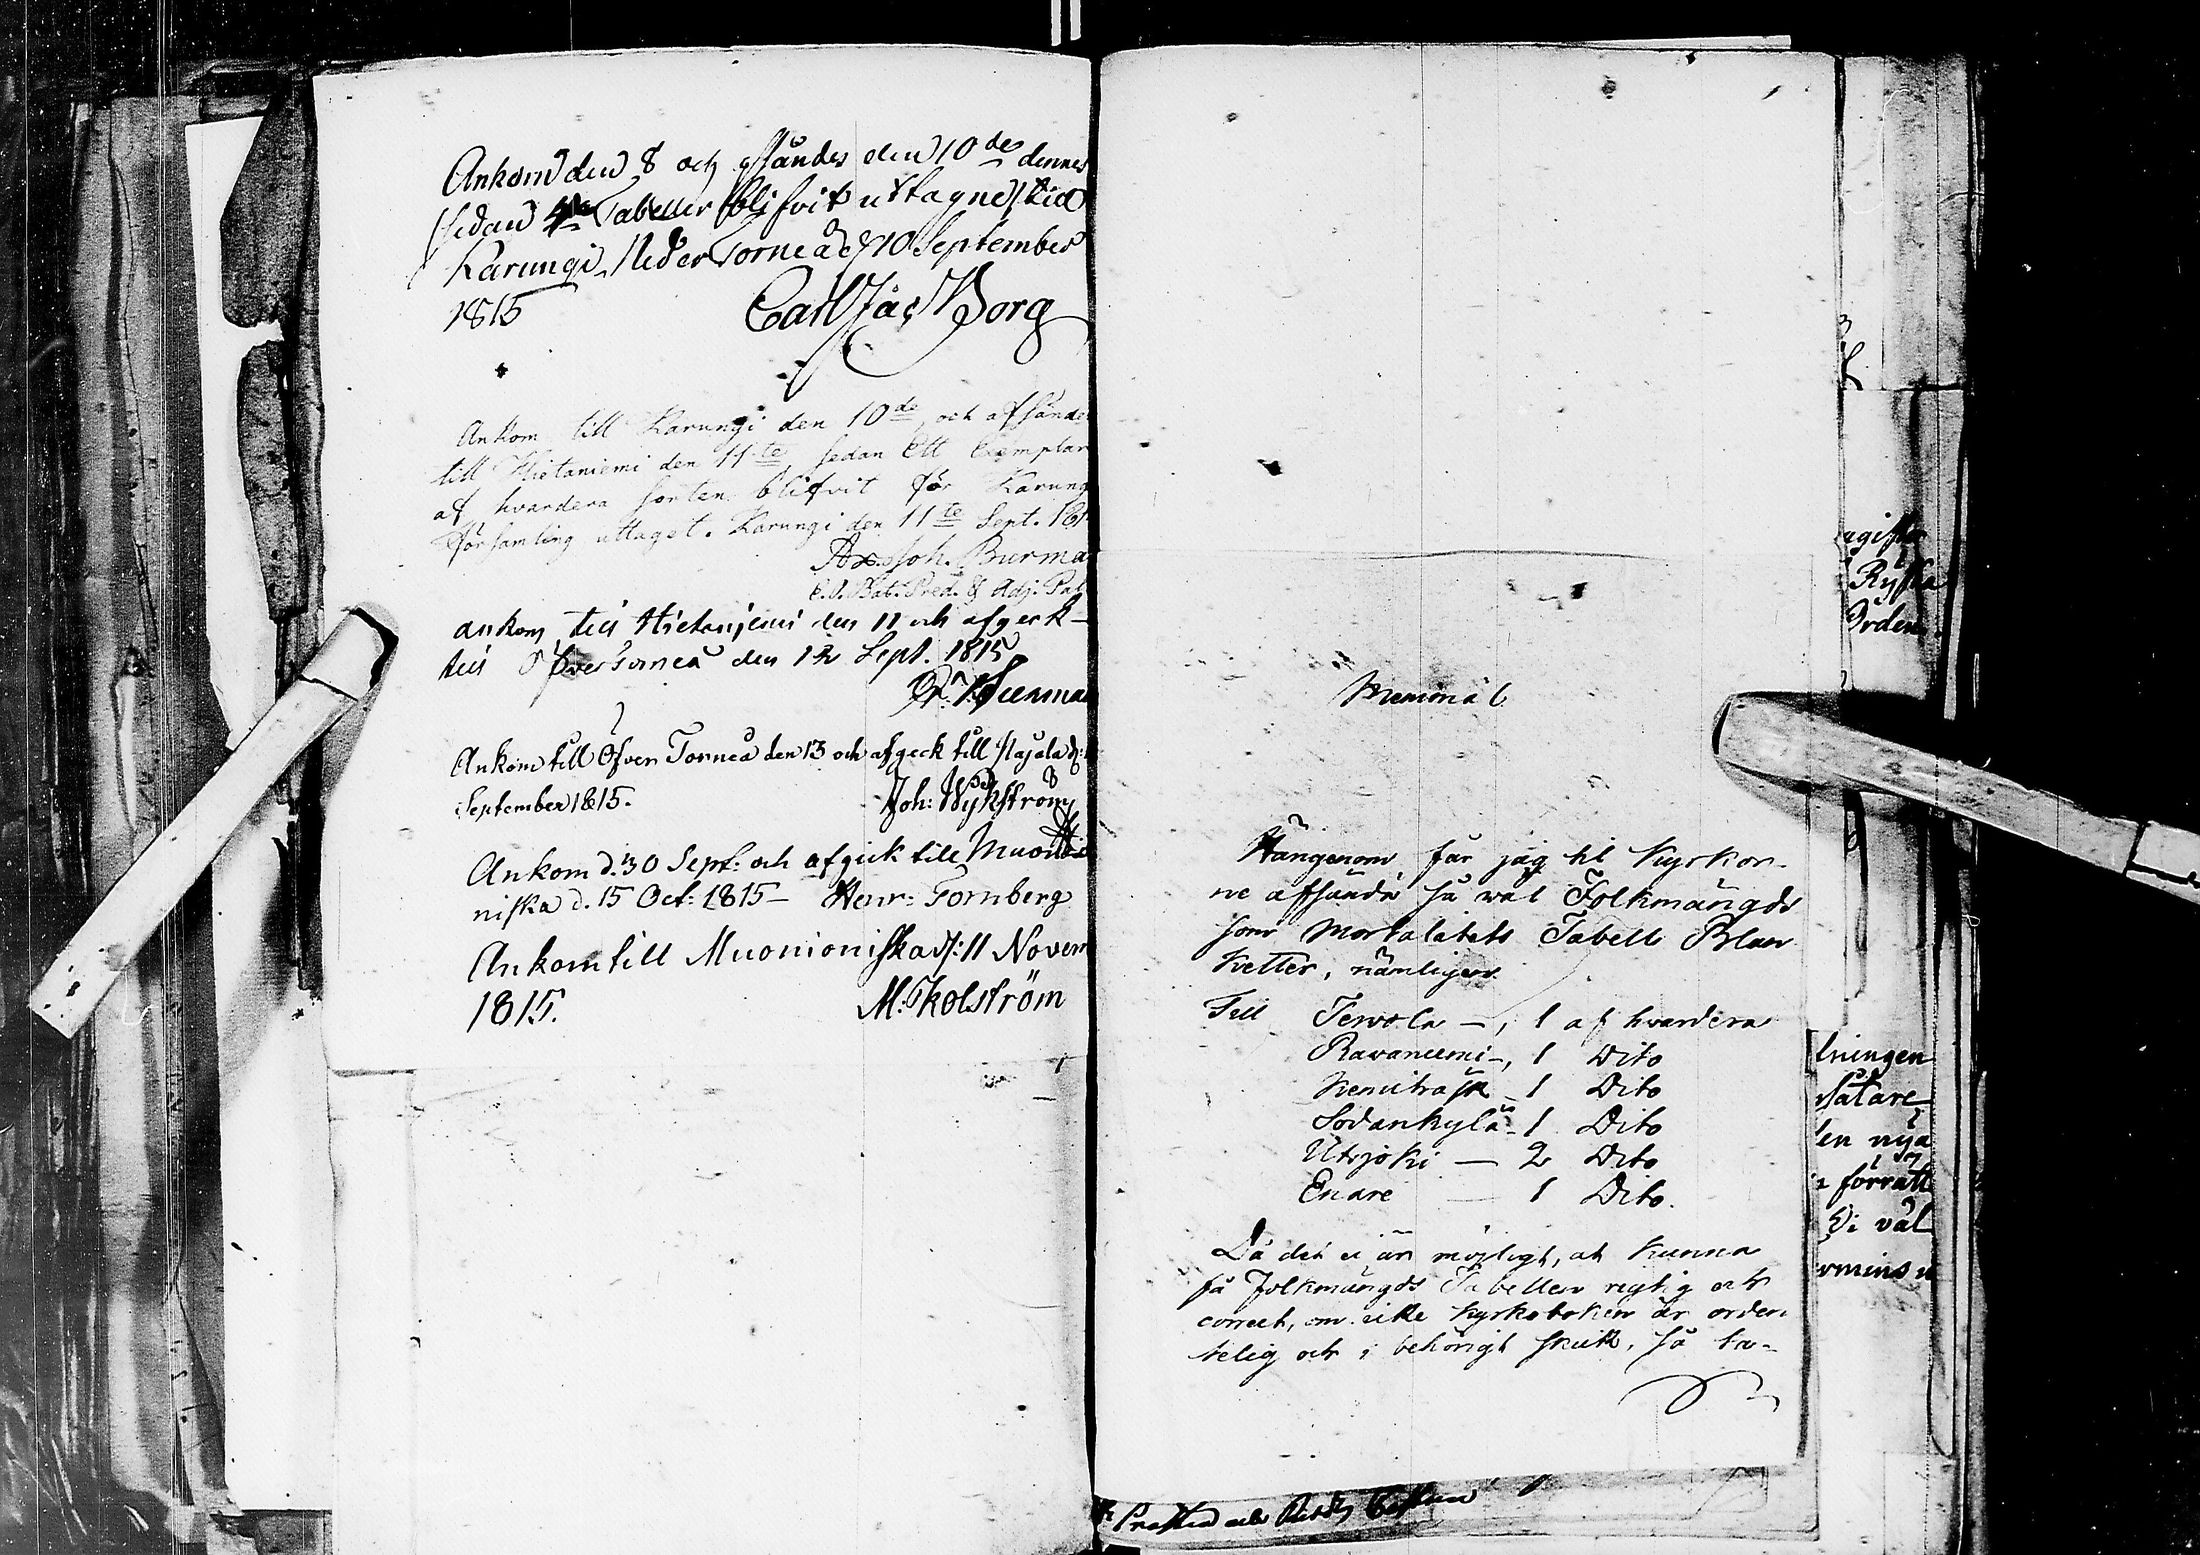 Ankom den 8 och afsändes den 10de dennes
sedan 4 Tabeller blifvit uttagne till
Karungi. Neder Torneå d 10 September
1815 Carl Jac Borg
Ankom till Karungi den 10de och afsändes
till Hietaniemi den 11te sedan Ett Exemplar
af hvardera sorten blifvit för Karung
Församling uttaget. Karungi den 11te Sept. 181
Ax. Joh. Burma
E.O. Bat. Pred. & Adj. Pas
ankom till Hietaniemi den 11 och afgeck
till Öfvertorneå den 12 Sept. 1815
Ankom till Öfver Torneå den 13 och afgeck till Pajala d:
September 1815. Joh: Wykström
Ankom d. 30 Sept: och afgick till Muonio
niska d. 15 Oct: 1815 – Henr: Fornberg
Ankom till Muonioniska d: 11 Novem
1815. M: Kolström
Memorial
Härigenom får jag til Kyrkor-
ne afsända så wäl Folkmängds
som Mortalitets Tabell Blan
ketter, nämligen
Till Terwola –, 1 af hvardera
Ravaniemi –, 1 Dito
Kemiträsk – 1 Dito
Sodankylä – 1 Dito
Utsjoki – 2 Dito
Enare – 1 Dito.
Då det ei är möjligt, at kunna
få Folkmängds Tabellen regtig och
correct, om icke Kyrkoboken är orden
telig och i behörigt skick, så to-
Ryska
Orden
lningen
en nya
förrätt
Di väl
rmins